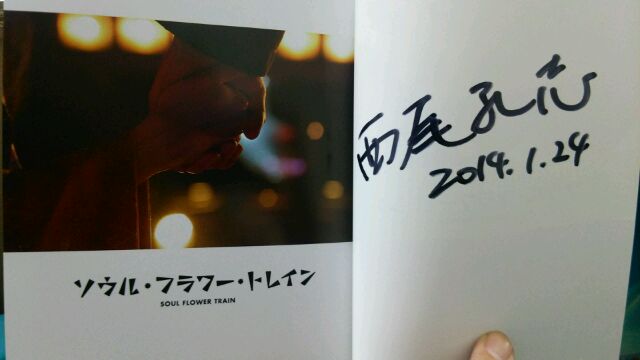 ソウル・フラワー・トレイン
SOUL FLOWER TRAIN
西尾孔志
2014.1.24